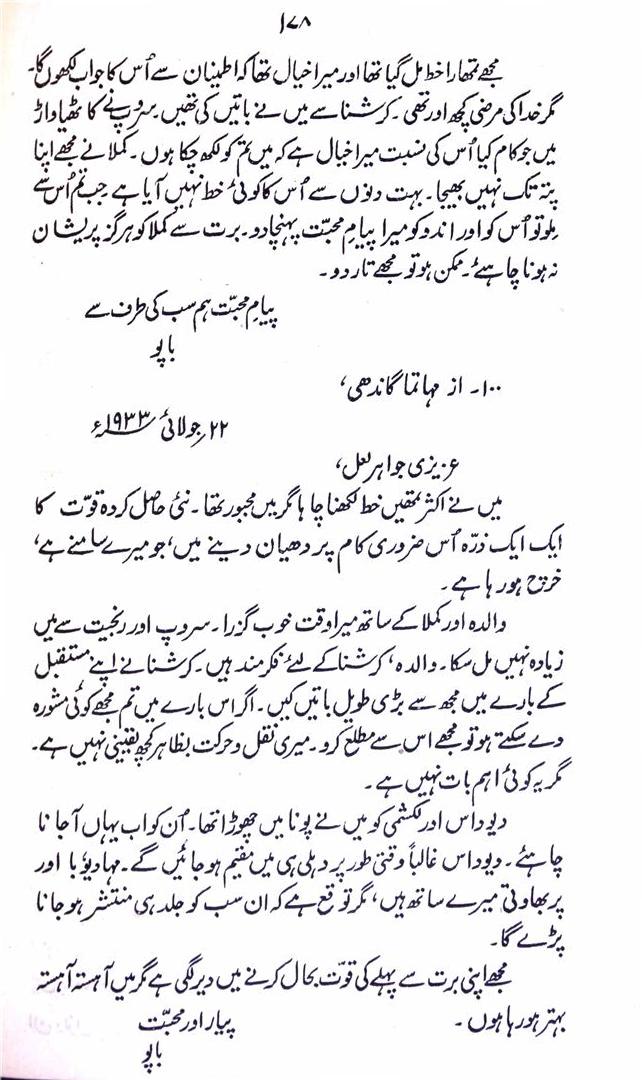 ۱۷۸
مجھے تمھارا خط مل گیا تھا اور میرا خیال تھا کہ اطمینان سے اُس کا جواب لکھوں گا۔
مگر خدا کی مرضی کچھ اور تھی۔ کرشنا سے میں نے باتیں کی تھیں۔ سروپ نے کاٹھیاواڑ
میں جو کام کیا اُس کی نسبت میرا خیال ہے کہ میں تم کو لکھ چکا ہوں۔ کملا نے مجھے اپنا
پتہ تک نہیں بھیجا۔ بہت دنوں سے اُس کا کوئی خط نہیں آیا ہے جب تم اُس سے
ملو تو اُس کو اور اندو کو میرا پیامِ محبّت پہنچا دو۔ برت سے کملا کو ہرگز پریشان
نہ ہونا چاہئے۔ ممکن ہو تو مجھے تار دو۔
پیامِ محبّت ہم سب کی طرف سے
باپو
۱۰۰۔ از مہاتما گاندھی،
۲۲ جولائی ۱۹۳۳ء
عزیزی جواہر لعل،
میں نے اکثر تمھیں خط لکھنا چاہا مگر میں مجبور تھا۔ نئی حاصل کردہ قوّت کا
ایک ایک ذرّہ اُس ضروری کام پر دھیان دینے میں، جو میرے سامنے ہے،
خرچ ہو رہا ہے۔
والدہ اور کملا کے ساتھ میرا وقت خوب گزرا۔ سروپ اور رنجیت سے میں
زیادہ نہیں مل سکا۔ والدہ، کرشنا کے لئے فکرمند ہیں۔ کرشنا نے اپنے مستقبل
کے بارے میں مجھ سے بڑی طویل باتیں کیں۔ اگر اس بارے میں تم مجھے کوئی مشورہ
دے سکتے ہو تو مجھے اس سے مطلع کرو۔ میری نقل و حرکت بظاہر کچھ یقینی نہیں ہے۔
مگر یہ کوئی اہم بات نہیں ہے۔
دیوداس اور لکشمی کو میں نے پونا میں چھوڑا تھا۔ اُن کو اب یہاں آجانا
چاہئے۔ دیوداس غالباً وقتی طور پر دہلی ہی میں مقیم ہو جائیں گے۔ مہادیو، با اور
پربھاوتی میرے ساتھ ہیں، مگر توقع ہے کہ ان سب کو جلد ہی منتشر ہو جانا
پڑے گا۔
مجھے اپنی برت سے پہلے کی قوّت بحال کرنے میں دیر لگی ہے مگر میں آہستہ آہستہ
بہتر ہو رہا ہوں۔
پیار اور محبّت
باپو